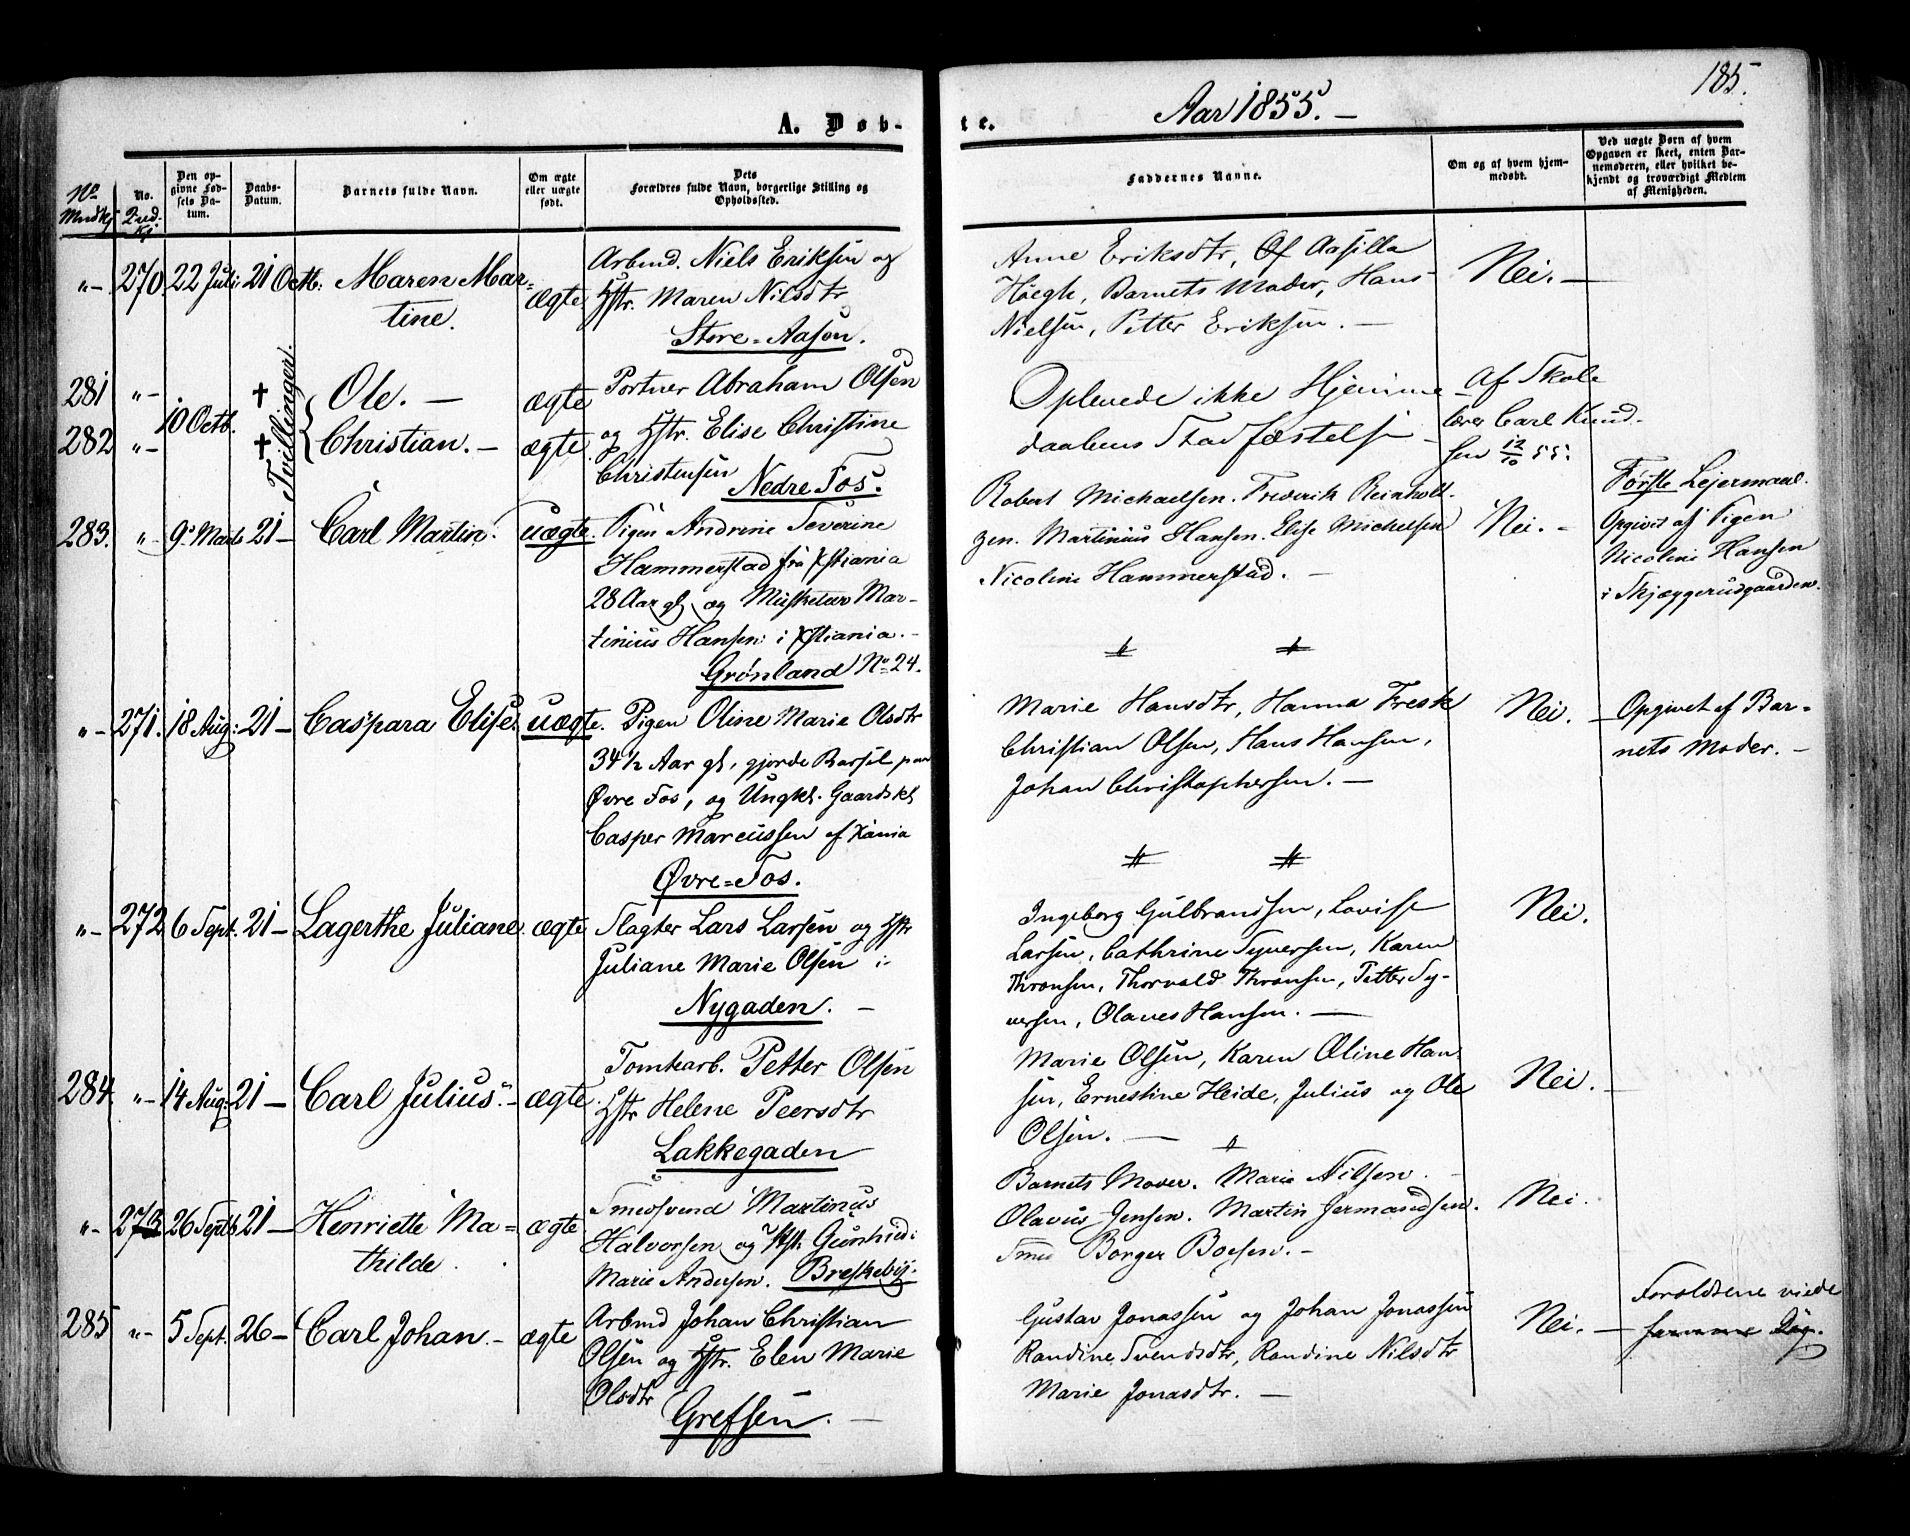 185.
Aar 1855. —
A. Døb-
te.
No. Mndkj.
No. Qvd-kj.
Den op-
givne Fød-
sels Da-
tum.
Daabs-
Datum.
Barnets fulde Navn.
Om ægte
eller uægte
født.
Dets
Forældres fulde Navn, borgerlige Stilling og
Opholdssted.
Faddernes Navne.
Om og af hvem hjem-
medøbt.
Ved uægte Børn af hvem
Opgaven er skeet, enten Bar-
nemoderen, eller hvilket be-
kjendt og troværdigt Medlem
af Menigheden.
"- 270. 22 Juli: 21 Octb: Maren Mar-
tine.
ægte.
Arbmd. Niels Eriksen og
Hstr. Maren Nilsdtr
Store-Aasen.
Anne Eriksdtr, Aasilla
Høegh, Barnets Moder, Hans
Nielsen, Petter Eriksen. —
Nei. —
281 "-
282 "-
10 Octb.
†
†
Tvillinger.
Ole. —
Christian. —
ægte
ægte.
Portner Abraham Olsen
og Hstr. Elise Christine
Christensen
Nedre Fos.
Oplevede ikke Hjemme-
daabens Stadfæstelse
Af Skole
lærer Carl Knud-
sen 12/10 55.
283. "- 9 Marts 21 — Carl Martin. uægte.
Pigen Andrine Severine
Hammerstad fra Xstiania
28 Aar gl, og Musketeer Mar-
tinius Hansen i Xstiania. -
Grønland No 24.
Robert Michaelsen. Frederik Reinholt-
zen. Martinius Hansen. Elise Michelsen
Nicoline Hammerstad. —
Nei. -
Første Lejermaal.
Opgivet af Pigen
Nicoline Hansen
i Skjæggerudgaarden.
"- 271. 18 Aug: 21 — Caspara Elise. uægte.
Pigen Oline Marie Olsdtr
34½ Aar gl, gjorde Barsel paa
Øvre Fos, og Ungkl. Gaardskl
Casper Marcussen af Xania
Øvre-Fos.
Marie Hansdtr, Hanna Fresk
Christian Olsen, Hans Hansen,
Johan Christophersen. —
Nei. —
Opgivet af Bar-
nets Moder. -
"- 272 6 Sept. 21 — Lagerthe Juliane. ægte
Slagter Lars Larsen og Hstr
Juliane Marie Olsen i
Nygaden. —
Ingeborg Gulbrandsen, Lovise
Larsen, Cathrine Syversen, Karen
Thronsen, Thorvald Thronsen, Petter Sy-
versen, Olaves Hansen. —
Nei.
284 "- 14 Aug: 21 — Carl Julius. - ægte.
Tomtearb. Petter Olsen
Hstr Helene Peersdtr
Lakkegaden
Marie Olsen, Karen Oline Han-
sen, Ernestine Heide, Julius og Ole
Olsen. —
Nei. —
"- 273 26 Septb 21 — Henriette Ma-
thilde.
ægte.
Smedsvend Martinus
Halvorsen og Hstr Gunhild
Marie Andersen. Breskeby.
Barnets Moder. Marie Nilsen.
Olavus Jensen. Martin Hermandsen.
Smed Borger Boesen. -
Nei.
285 "- 5 Sept. 26 — Carl Johan. - ægte
Arbmd Johan Christian
Olsen og Hstr. Elen Marie
Olsdtr
Grefsen. —
Gustav Jonassen og Johan Jonassen
Randine Svendsdtr, Randine Nilsdtr
Marie Jonasdtr. —
Nei. —
Forældrene viede
samme Dag.